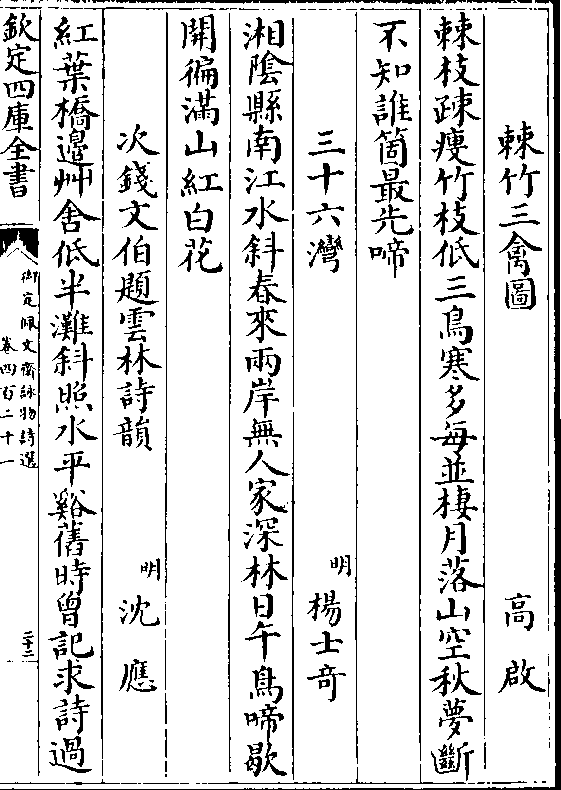 棘竹三禽圖　高啟
棘枝疎瘦竹枝低三鳥寒多每並棲月落山空秋夢斷
不知誰箇最先啼
三十六灣　明楊士奇
湘陰縣南江水斜春來兩岸無人家深林日午鳥啼歇
開徧滿山紅白花
次錢文伯題雲林詩韻　明沈應
紅葉橋邊艸舍低半灘斜照水平谿舊時曾記求詩過
欽定四庫全書
御定佩文齋詠物詩選
卷四百二十一